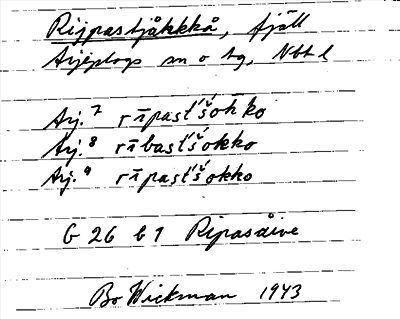 Rijpastjåkkå, fjäll
Arjeplogs sn o tg, Nbt l
Arj.7 rīpast́šoh̄ko
Arj.8 rībast́šokko
Arj.9 rīpast́šokko
G 26 b 1 Ripasåive
Bo Wickman 1943